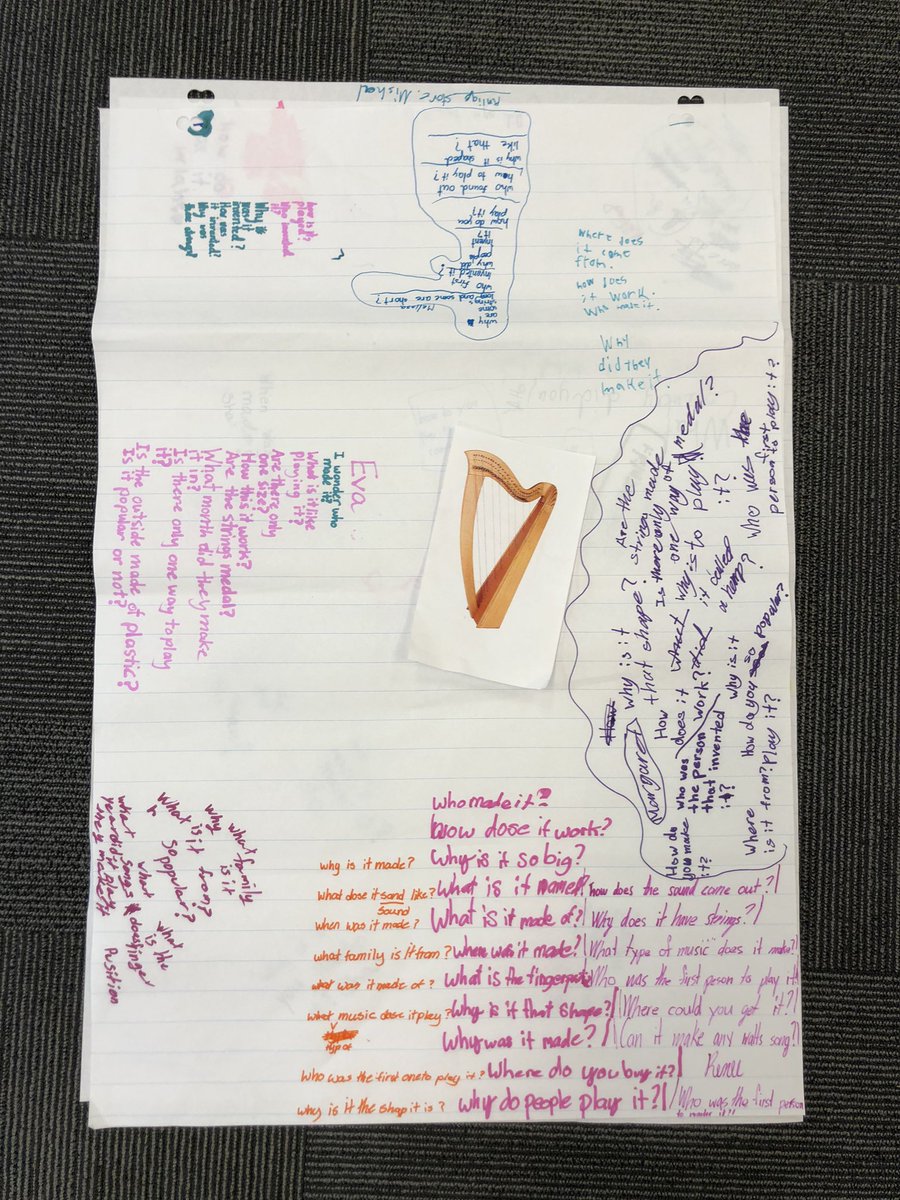 Mishal
why is it shaped
like that?
how to play it?
who found out
how do you
play it?
why did
people
invent
it?
who first
invented it?
why are
some
strings
long and some are short?
Melissa
how is it
played?
who invented
it?
Why
was it
invented?
How was
it invented?
Why was
it
where does
it came
from.
how does
it work.
Why
Did they
make it
Eva
I wonder who
made it?
What is it like
playing it?
Are there only
one size?
How this it work?
Are the strings medal?
What month did they make
it in?
Is there only one way to play
it?
Is the outside made of plastic?
Is it popular or not?
Margaret
why is it
that shape?
Are the
strings made
of medal?
How
does it
work?
Is there only
one way
to play
it?
why is
it called
a harp?
who was the
person first
to play it?
who was
the person
that invented
it?
How do
you make
it?
why is it
so popular?
Where
is it from?
How do you
play it?
what family
is it
why
is it
so popular?
What
is it from?
what is the
finger
Position
what songs
does
who made it?
how dose it work?
Why is it so big?
What is it named?
What is it made of?
When was it made?
What is the fingerposit
Why is it that shape?
Why was it made?
Where do you buy it?
why do people play it?
why is it made?
What dose it sand like?
sound
when was it made?
what family is it from?
what was it made of?
what music dose it play?
type of
Who was the first one to play it?
why is it the shap it is?
how does the sound come out?
Why does it have strings?
What type of music does it make?
Who was the first person to play it?
Where could you get it?
Can it make any walts song?
Renee
Who was the first person
to make it?